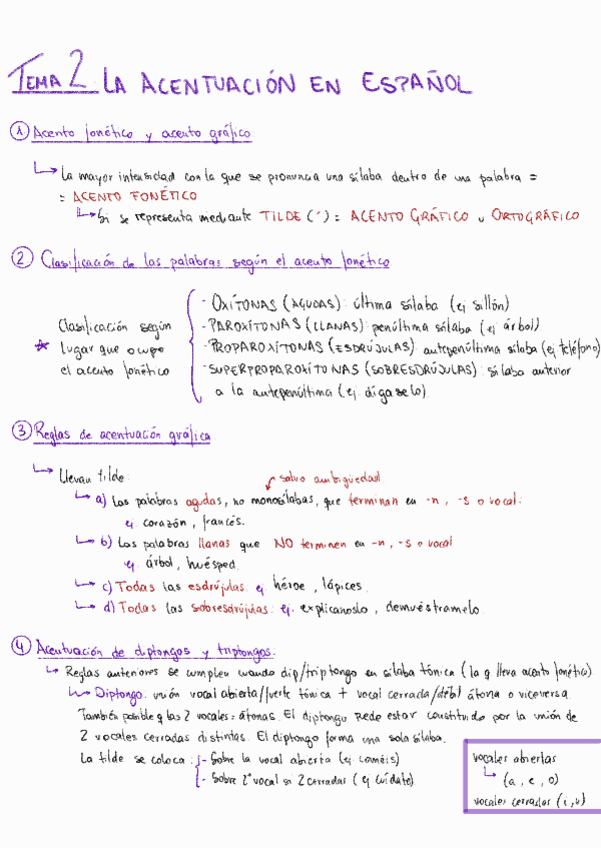 TEMA 2: LA ACENTUACIÓN EN ESPAÑOL
① Acento fonético y acento gráfico
La mayor intensidad con la que se pronuncia una sílaba dentro de una palabra =
= ACENTO FONÉTICO
Si se representa mediante TILDE (´) = ACENTO GRÁFICO u ORTOGRÁFICO
② Clasificación de las palabras según el acento fonético
Clasificación según
lugar que ocupa
el acento fonético
- OXÍTONAS (AGUDAS): última sílaba (ej sillón)
- PAROXÍTONAS (LLANAS): penúltima sílaba (ej árbol)
- PROPAROXÍTONAS (ESDRÚJULAS): antepenúltima sílaba (ej teléfono)
- SUPERPROPAROXÍTONAS (SOBRESDRÚJULAS): sílaba anterior
a la antepenúltima (ej. dígaselo)
③ Reglas de acentuación gráfica
Llevan tilde:
salvo ambigüedad
a) Las palabras agudas, no monosílabas, que terminan en -n, -s o vocal:
ej. corazón, francés.
b) Las palabras llanas que NO terminen en -n, -s o vocal
ej. árbol, huésped.
c) Todas las esdrújulas: ej. héroe, lápices.
d) Todas las sobresdrújulas: ej. explícanoslo, demuéstramelo.
④ Acentuación de diptongos y triptongos:
Reglas anteriores se cumplen cuando dip/triptongo en sílaba tónica (la q lleva acento fonético).
Diptongo: unión vocal abierta/fuerte tónica + vocal cerrada/débil átona o viceversa.
También posible q las 2 vocales = átonas. El diptongo puede estar constituido por la unión de
2 vocales cerradas distintas. El diptongo forma una sola sílaba.
La tilde se coloca:
- Sobre la vocal abierta (ej. coméis)
- Sobre 2ª vocal si 2 cerradas (ej cuídate)
vocales abiertas
(a, e, o)
vocales cerradas (i, u)